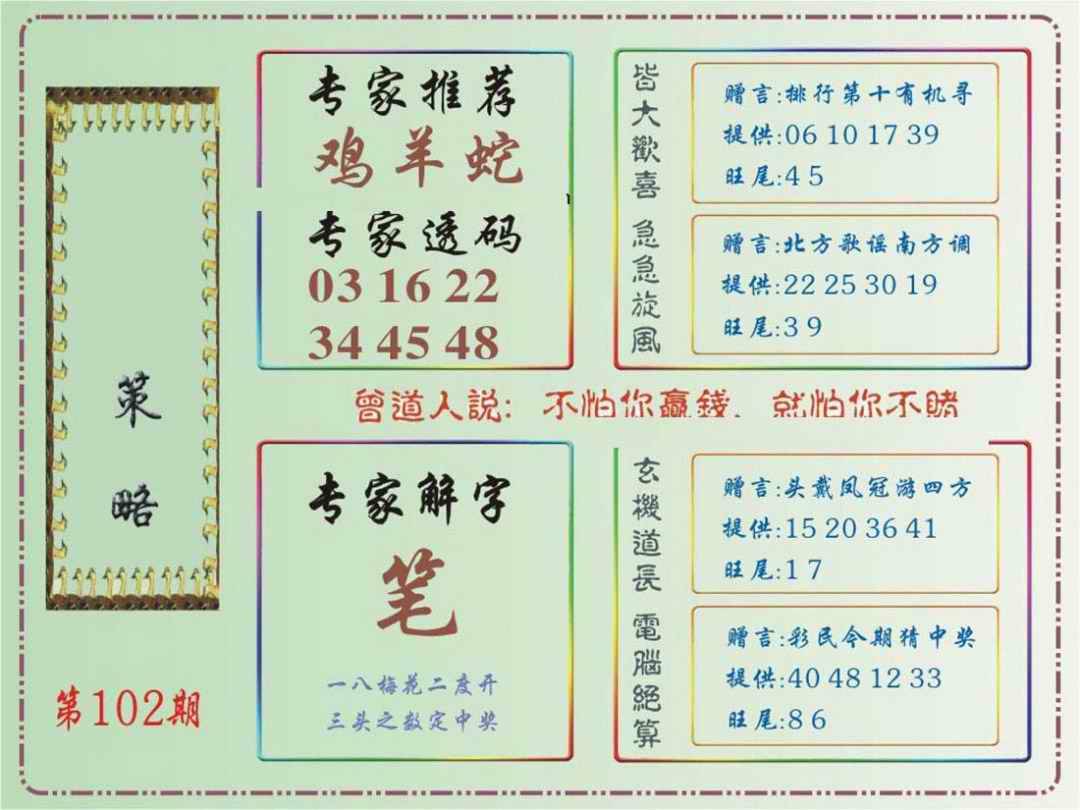 策
略
第102期
专家推荐
鸡羊蛇
专家透码
03 16 22
34 45 48
皆大歡喜
赠言:排行第十有机寻
提供:06 10 17 39
旺尾:4 5
急急旋風
赠言:北方歌谣南方调
提供:22 25 30 19
旺尾:3 9
曾道人説: 不怕你贏錢, 就怕你不賭
专家解字
笔
一八梅花二度开
三头之数定中奖
玄機道長
赠言:头戴凤冠游四方
提供:15 20 36 41
旺尾:1 7
電腦絕算
赠言:彩民今期猜中奖
提供:40 48 12 33
旺尾:8 6